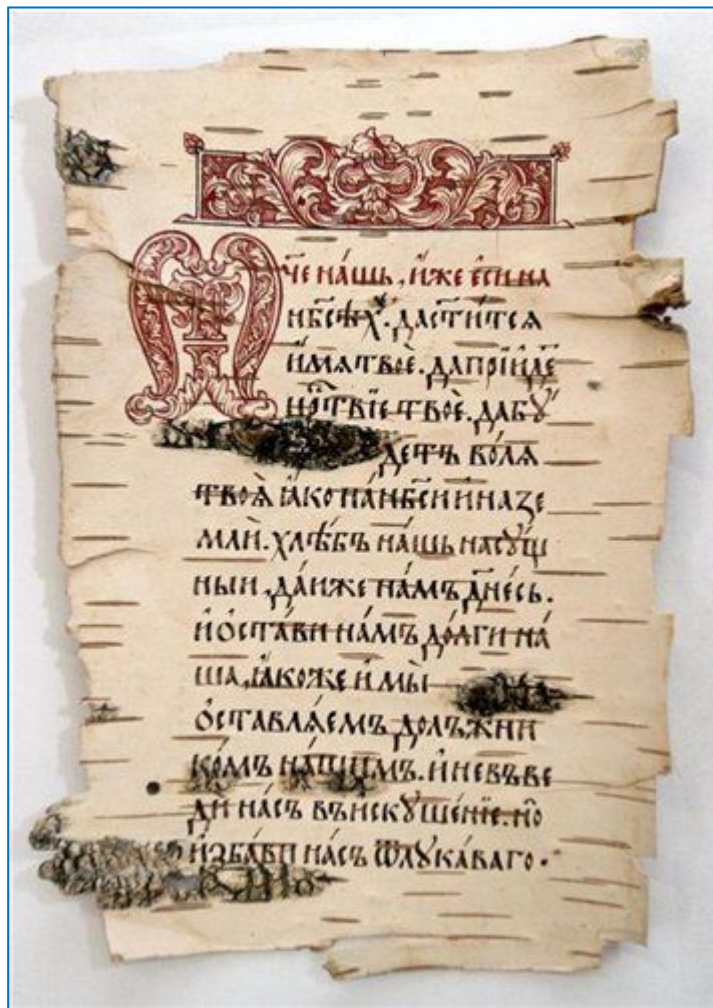 Ѿч҃е на́шь, и́же е҆си на
нбсѣ́х. да ст҃и́тся
и́мя твоѐ. да прїи́де
цр҃твїе твоѐ. да бꙋ́
детъ во́ля
твоѧ̀ ꙗ҆́ко на́ нбси и на зе
мли̇̀. хлѣ́бъ на́шь насꙋ́щ
ныи, да́и же на́мъ дне́сь.
и҆ о҆ста́ви на́мъ до́лги на́
ша, ꙗ҆́коже и҆ мы̀
о҆ставлѧ́емъ должни
ко́мъ на́шимъ. и҆ не въве
ди на́съ въ искꙋше́нїе. но
изба́ви на́съ ѿ лꙋка́ваго.